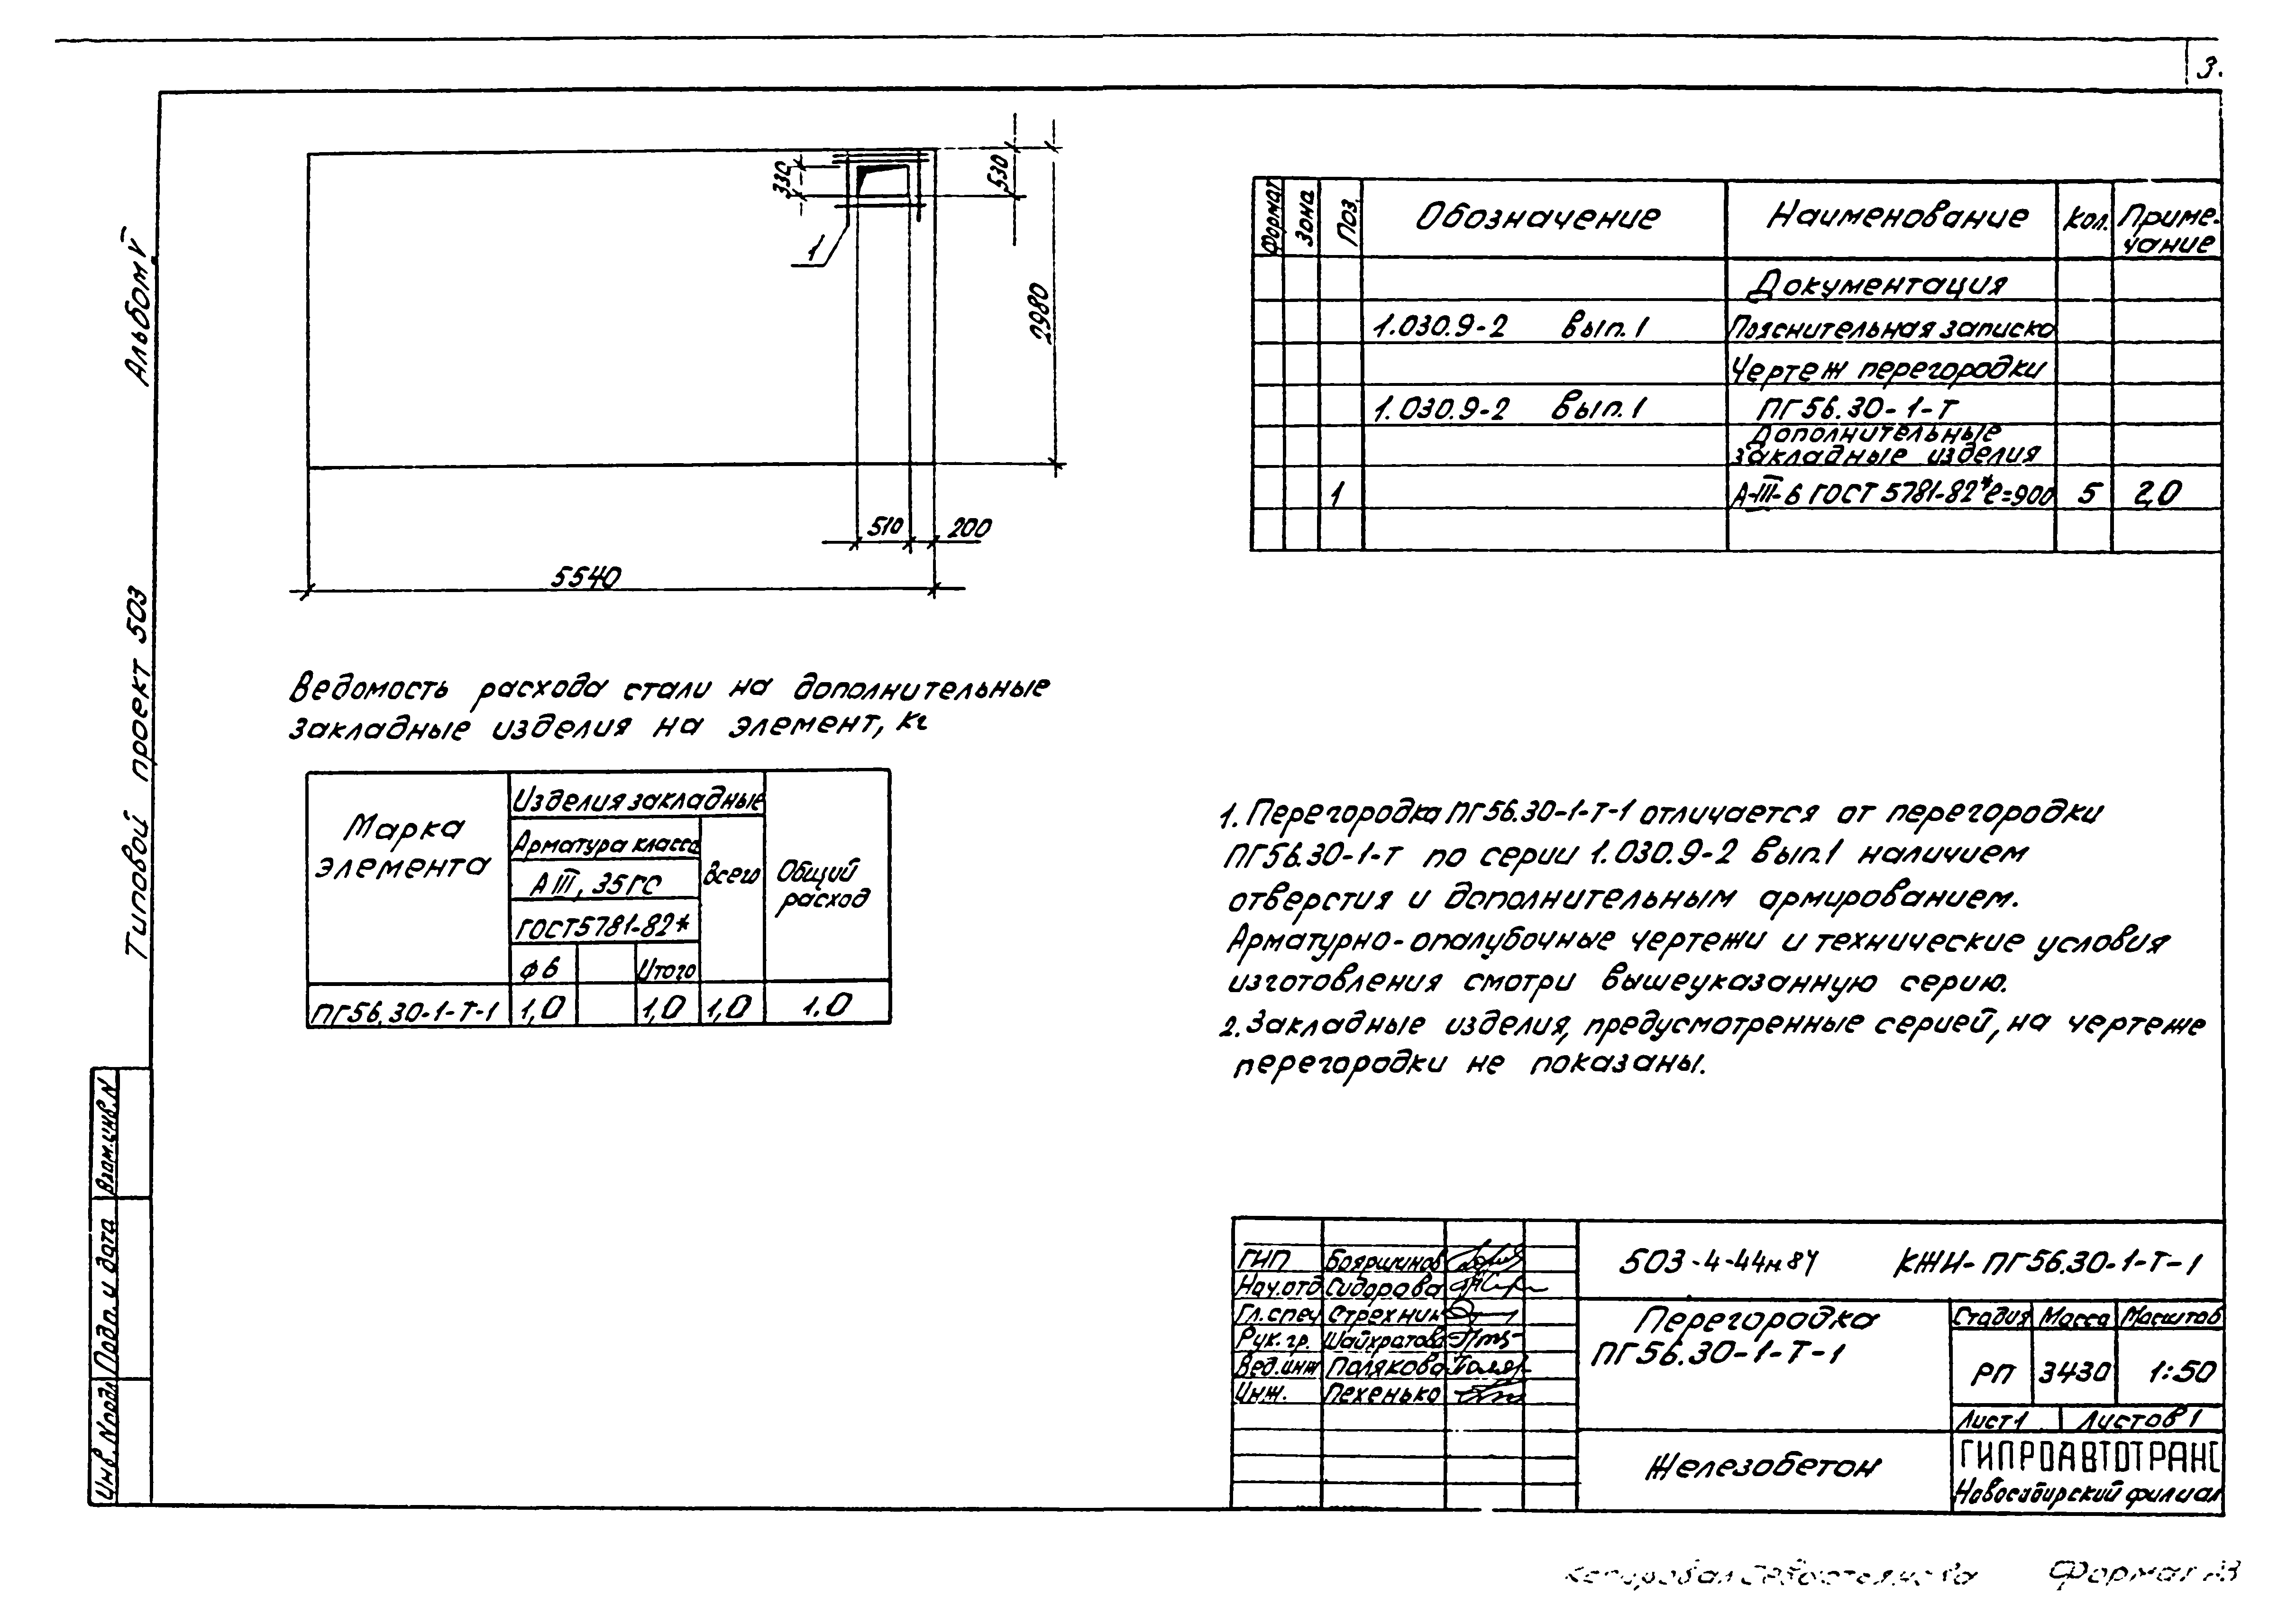 3.
Альбом V
Типовой проект 503
330
530
2980
1
510
200
5540
Формат Зона Поз. Обозначение Наименование Кол. Приме-
чание
Документация
1.030.9-2 вып.1 Пояснительная записка
Чертеж перегородки
1.030.9-2 Вып.1 ПГ56.30-1-Т
Дополнительные
закладные изделия
1 А-III-6 ГОСТ 5781-82* ℓ=900 5 2,0
Ведомость расхода стали на дополнительные
закладные изделия на элемент, кг
Марка
элемента
Изделия закладные
Арматура класса
А III, 35ГС
ГОСТ5781-82*
ф6 Итого
Всего
Общий
расход
ПГ56.30-1-Т-1 1,0 1,0 1,0 1.0
1. Перегородка ПГ56.30-1-Т-1 отличается от перегородки
ПГ56.30-1-Т по серии 1.030.9-2 Вып.1 наличием
отверстия и дополнительным армированием.
Арматурно-опалубочные чертежи и технические условия
изготовления смотри вышеуказанную серию.
2. Закладные изделия, предусмотренные серией, на чертеже
перегородки не показаны.
Взам.инв.N
Подп. и дата
Инв. Nподл
ГИП Бояршинов
Нач.отд Сидорова
Гл.спец Стрехнин
Рук.гр. Шайхратова
Вед.инж Полякова
Инж. Пехенько
503-4-44н87 КЖИ-ПГ56.30-1-Т-1
Перегородка
ПГ56.30-1-Т-1
Стадия Масса Масштаб
РП 3430 1:50
Лист 1 Листов 1
Железобетон
ГИПРОАВТОТРАНС
Новосибирский филиал
Копировал Севостьянова Формат А3